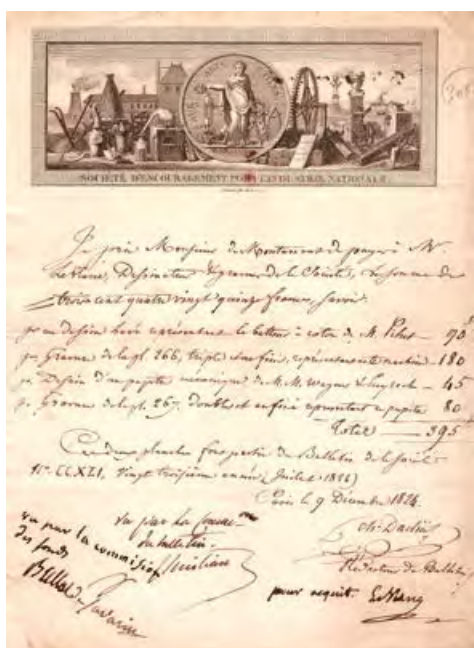 SOCIÉTÉ D'ENCOURAGEMENT POUR L'INDUSTRIE NATIONALE.
Je prie Monsieur de Montamant de payer à Mr.
Leblanc, Dessinateur & graveur de la Société, la somme de
trois cent quatre vingt quinze francs, savoir
pr un Dessin lavé représentant le batteur à coton de M. Pihet — 90
pr Gravure de la pl. 266, triple et ombrée, représentant cette machine — 180
pr Dessin d'un pupitre mécanique de M.M. Wagner & — 45
pr Gravure de la pl. 267, double et représentant ce pupitre 80
Total — 395
Ces deux planches font partie du Bulletin de la Société
No. CCXLI, Vingt troisième année (Juillet 1824)
Paris le 9 Décembre 1824.
vu par la commission
des fonds
vu par la Comm.on
du bulletin.
Rédacteur du Bulletin
pour acquit. LeBlanc